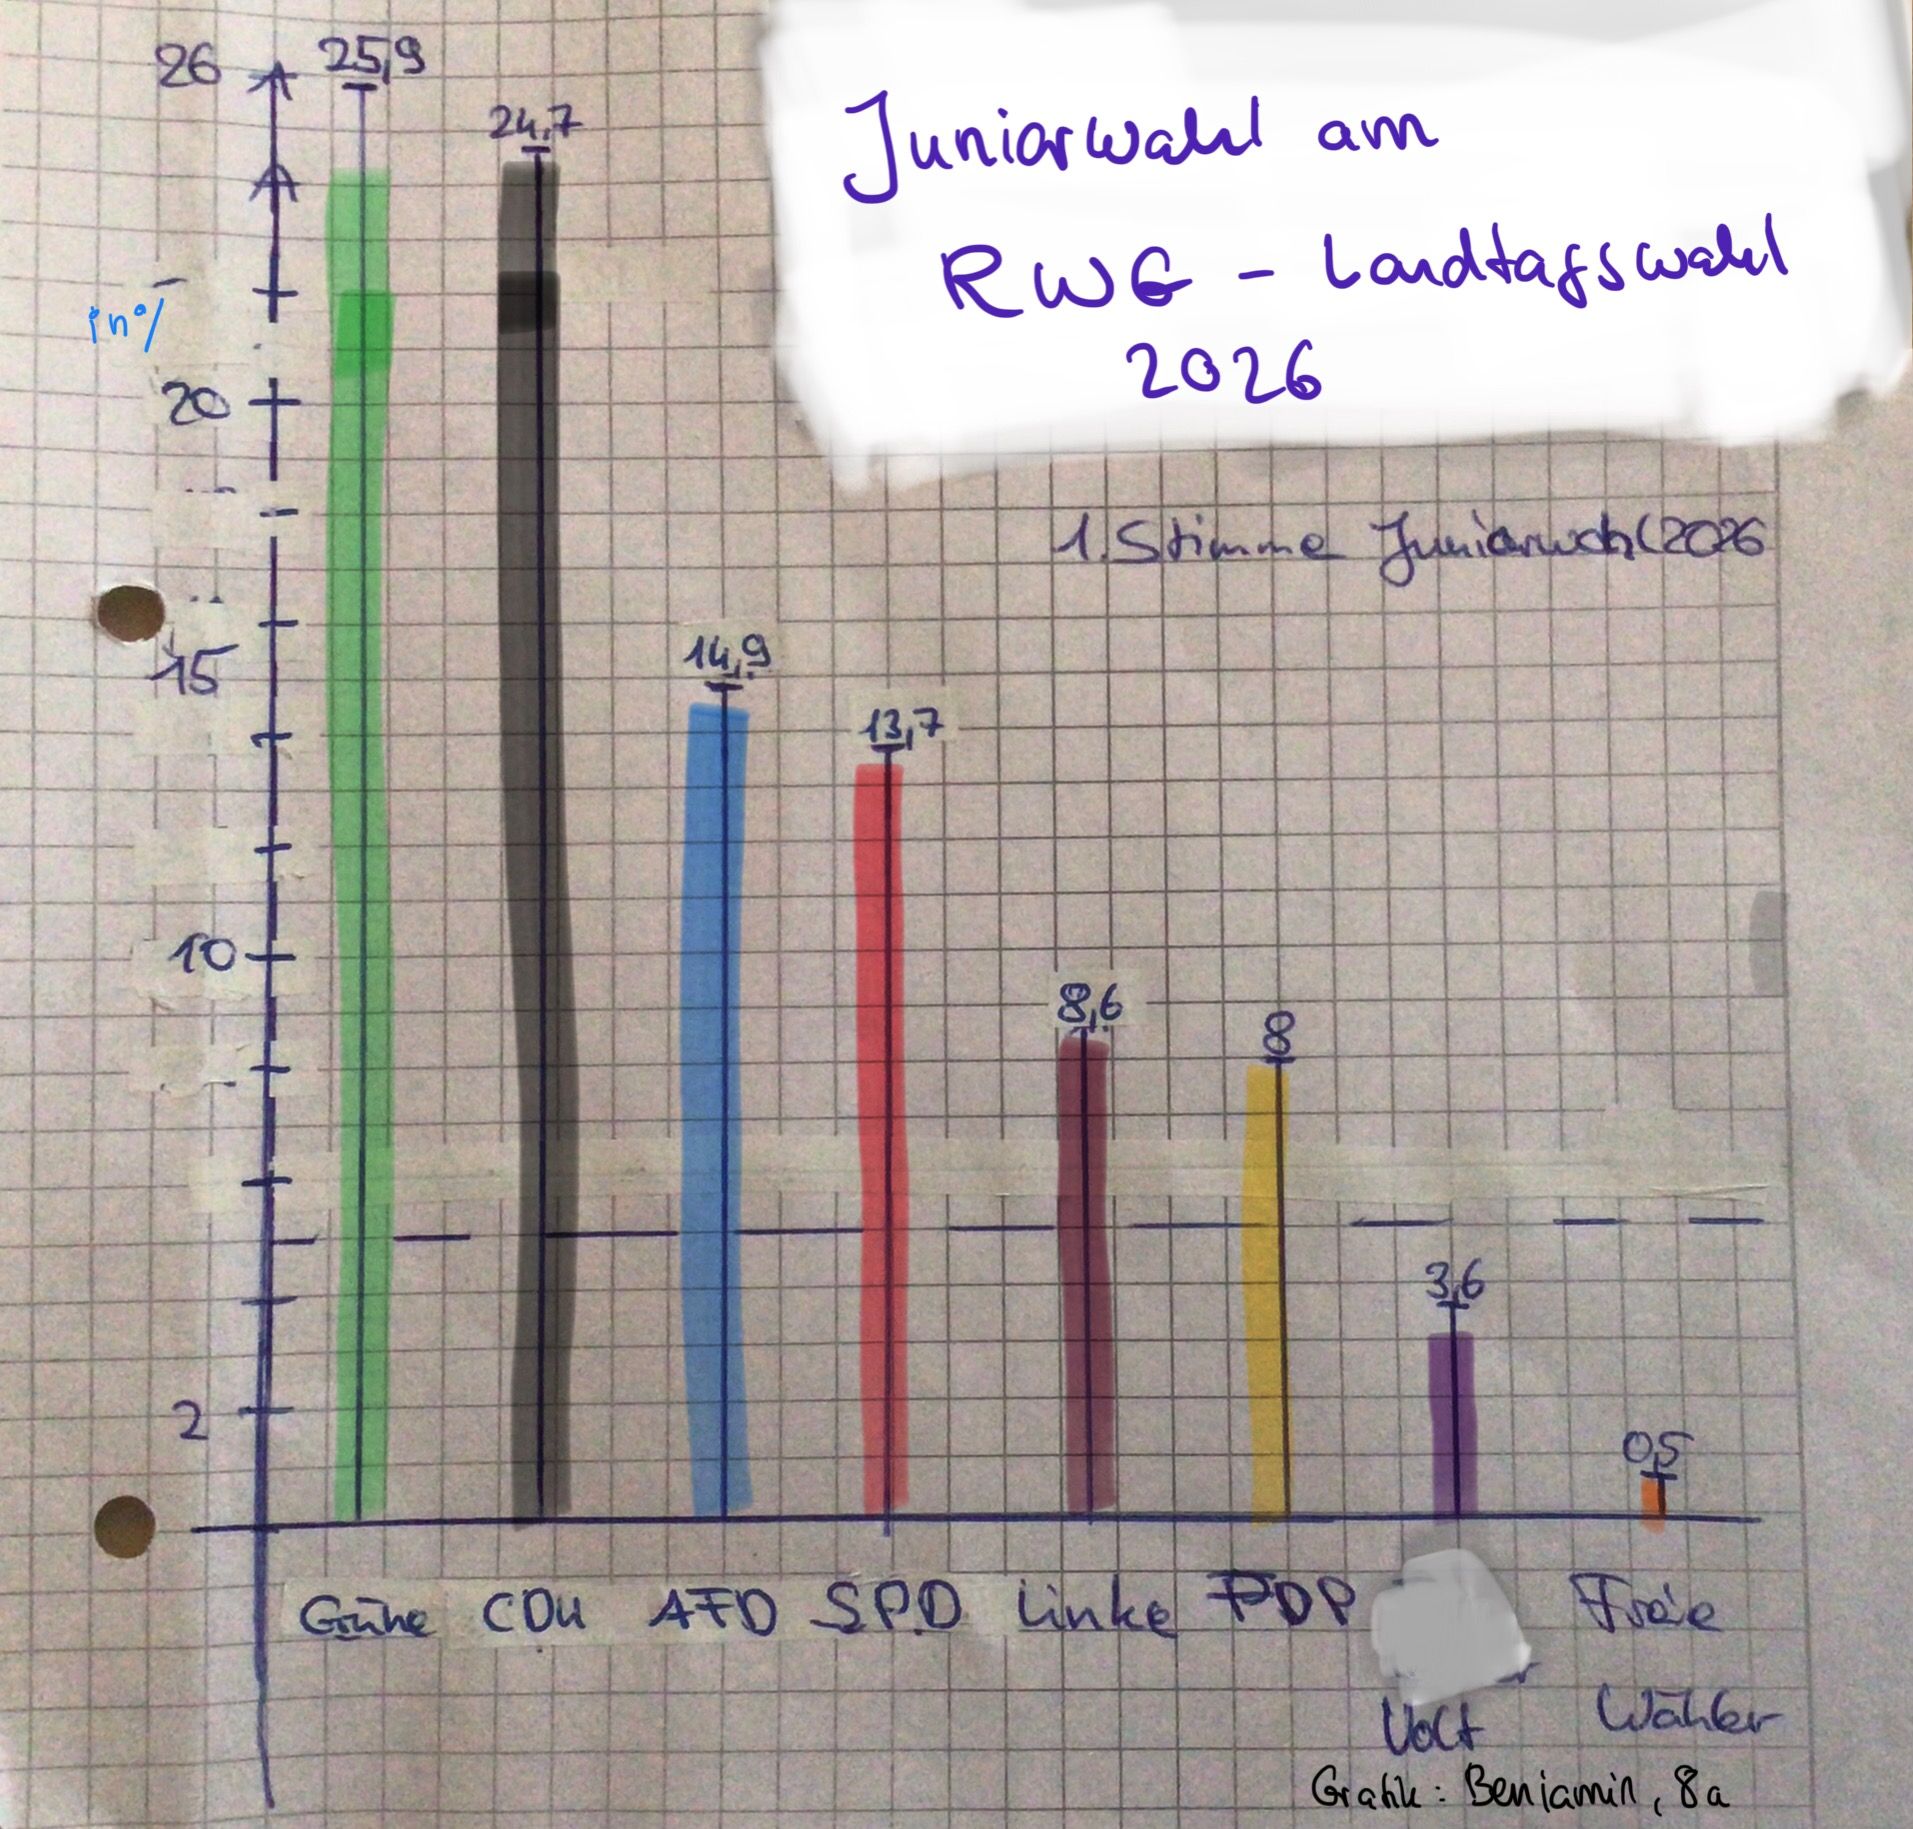 Juniorwahl am
RWG - Landtagswahl
2026
1. Stimme Juniorwahl 2026
in %
26
20
15
10
2
25,9
24,7
14,9
13,7
8,6
8
3,6
0,5
Grüne CDU AFD SPD Linke FDP Volt Freie Wähler
Grafik: Benjamin, 8a